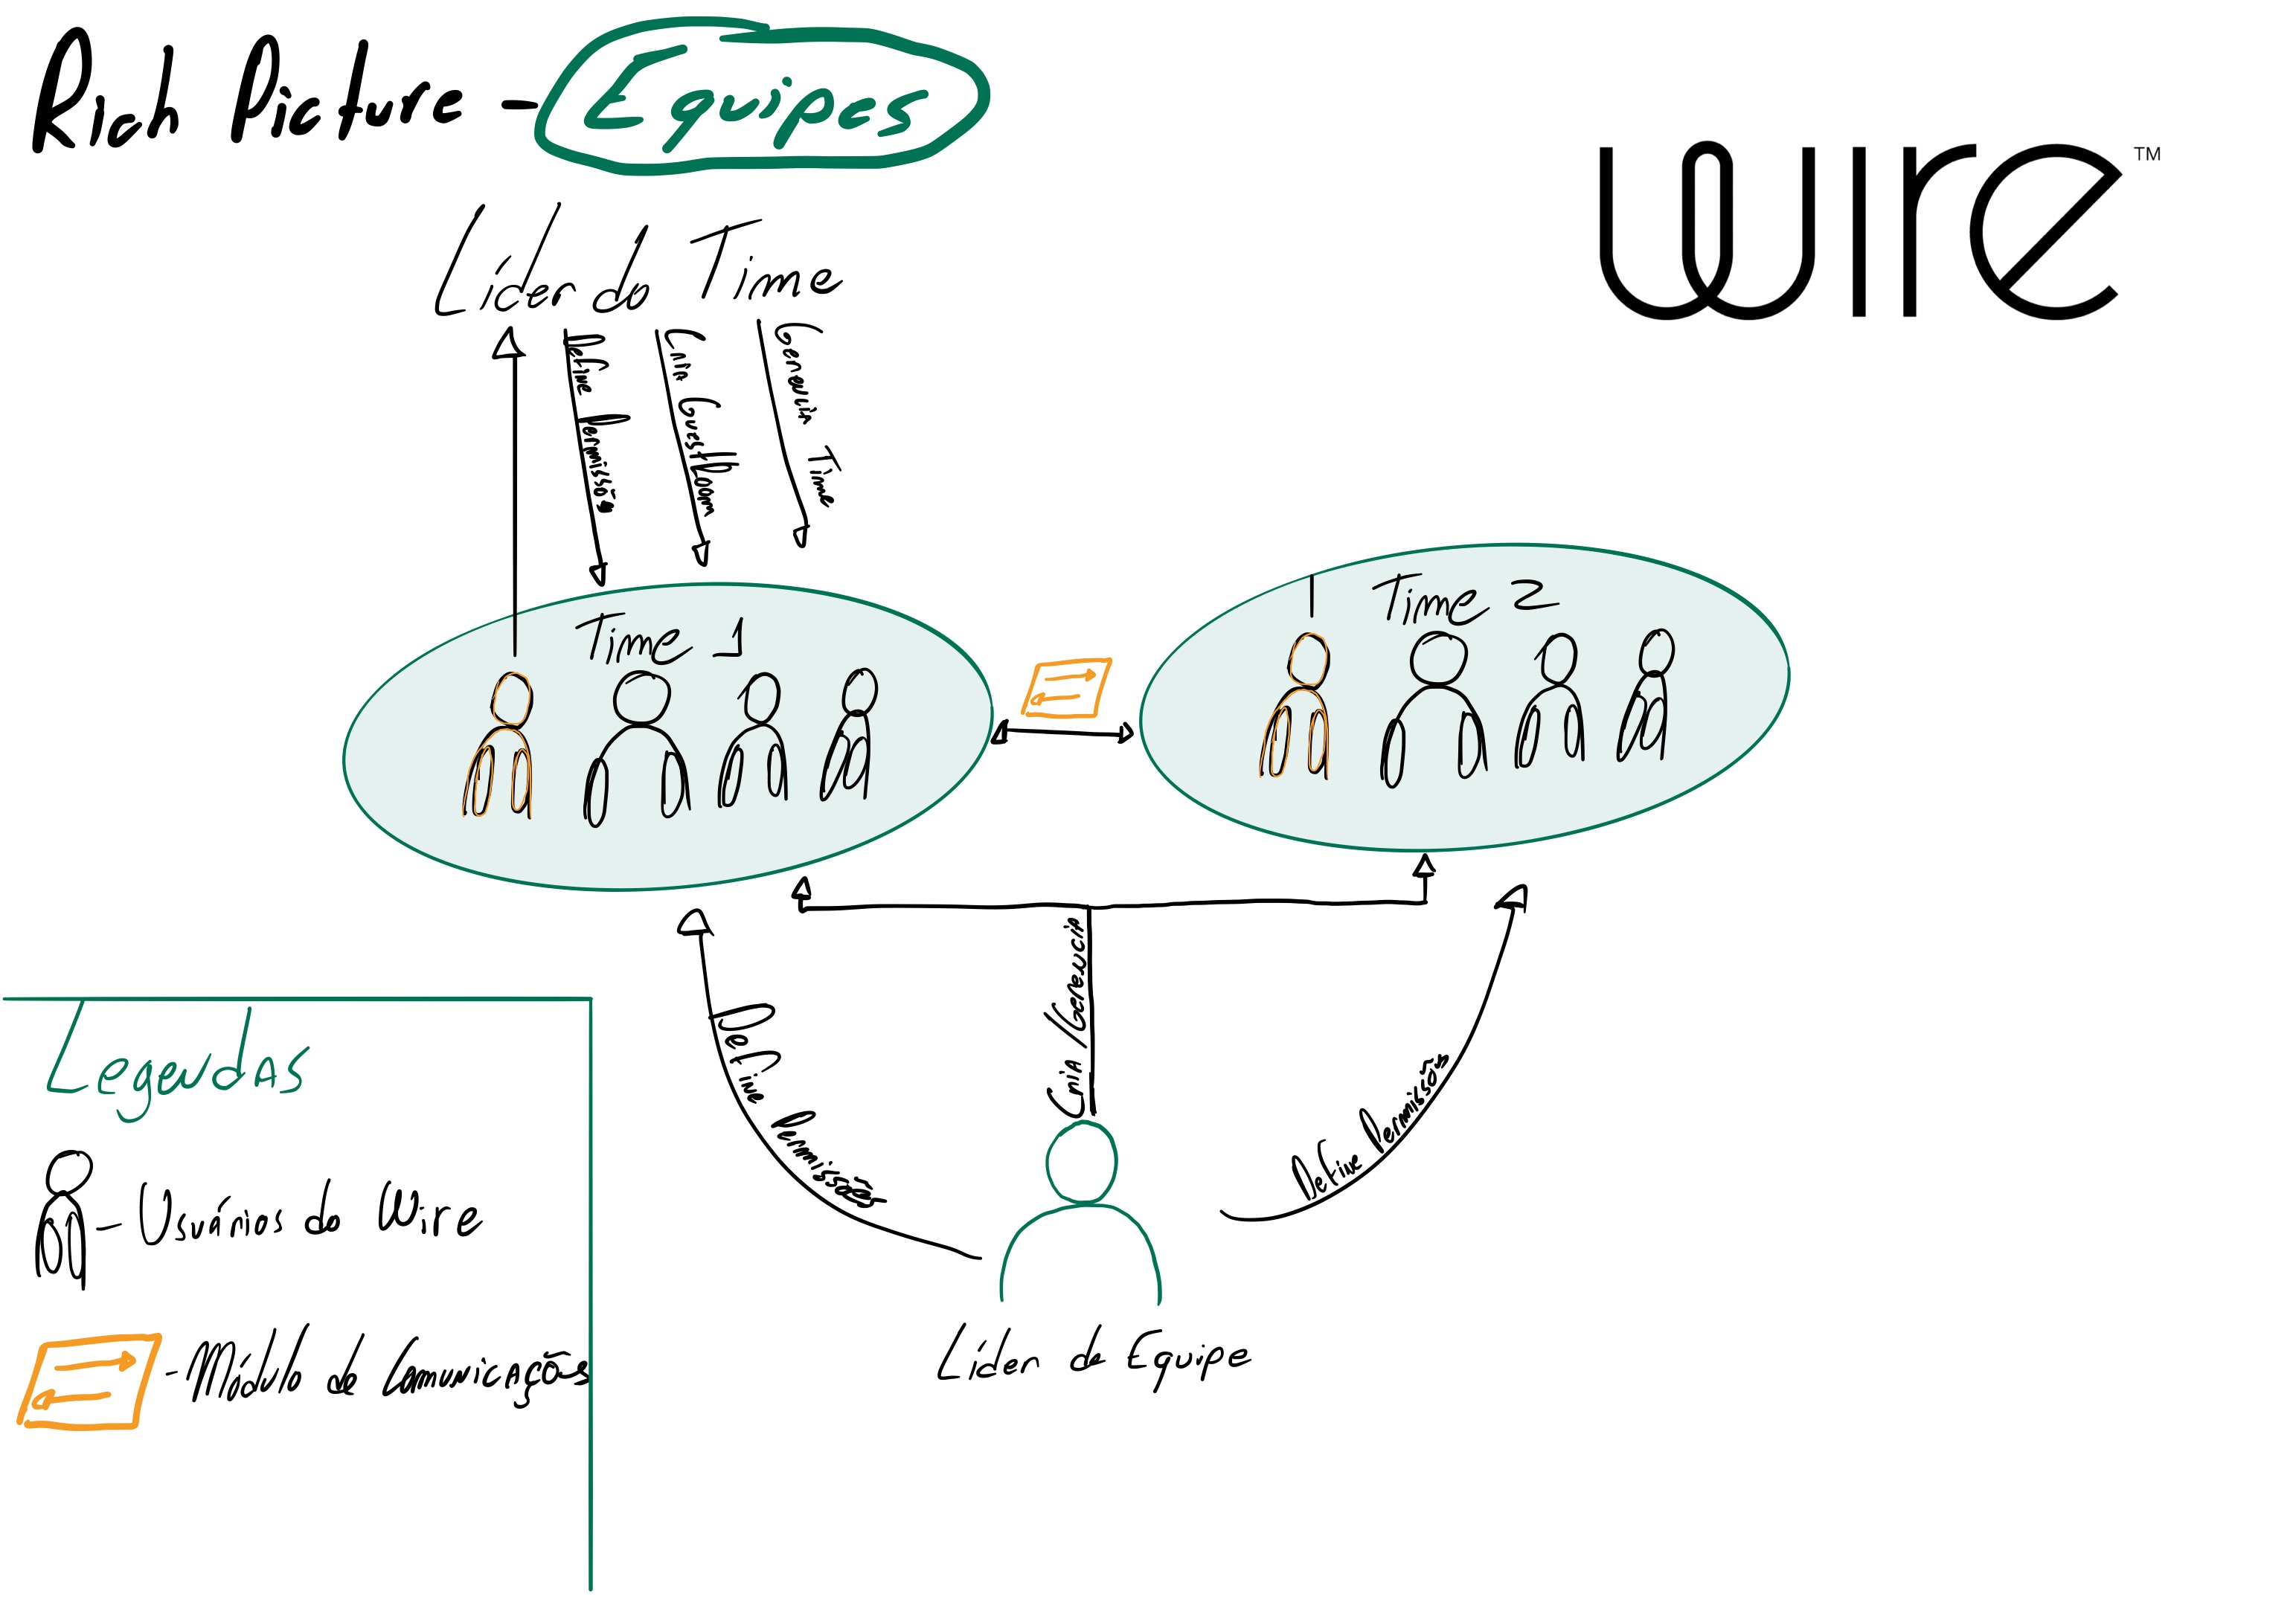 Rich Picture - Equipes
wire™
Líder do Time
Define Permissão
Cria GuestRoom
Gerencia Time
Time 1
Time 2
Cria / Gerencia
Define Permissão
Define Permissão
Líder de Equipe
Legendas
- Usuários do Wire
- Módulo de Comunicações